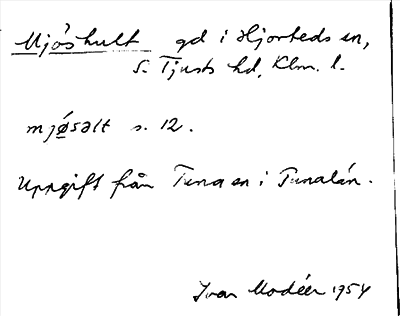 Mjöshult gd i Hjorteds sn,
S. Tjusts hd, Klm. l.
mjǿsalt s. 12.
Uppgift från Tuna sn i Tunalän.
Ivar Modéer 1954